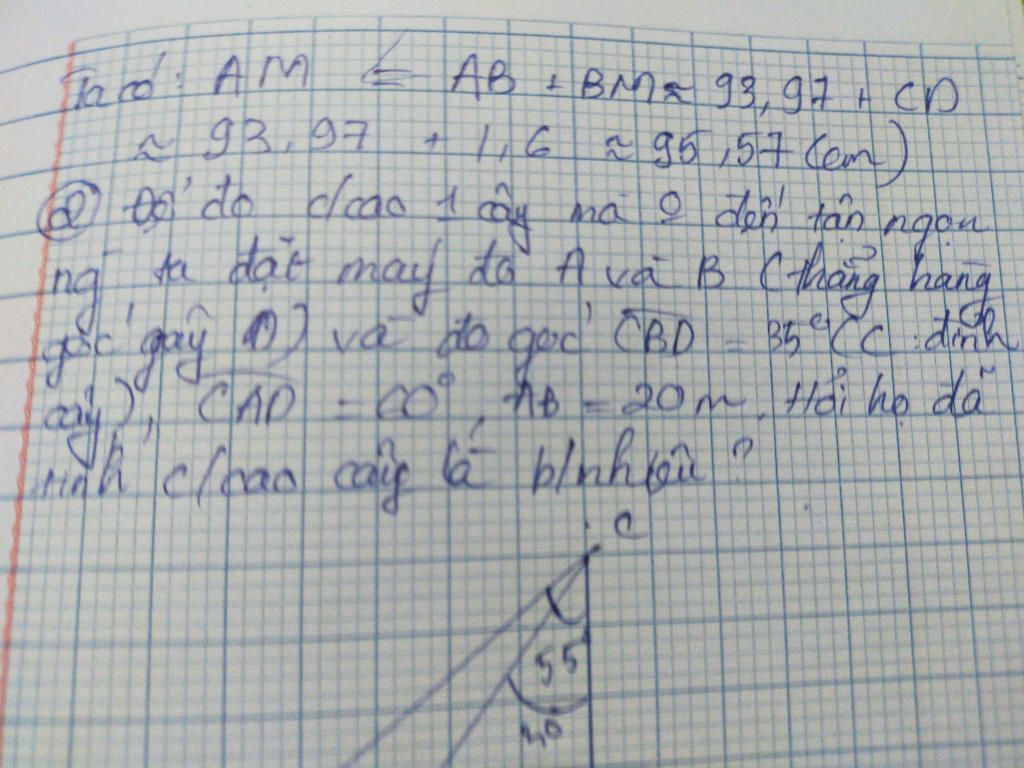 Ta có: AM = AB + BM ≈ 93,97 + CD
≈ 93,97 + 1,6 ≈ 95,57 (cm)
② Để đo c/cao 1 cây mà o đến tận ngọn
ng ta đặt máy đo A và B (thẳng hàng
gốc cây D) và đo góc CBD = 35° (C: đỉnh
cây), CAD = 60°, AB = 20m. Hỏi họ đã
tính c/cao cây là b/nhiêu?
C
55